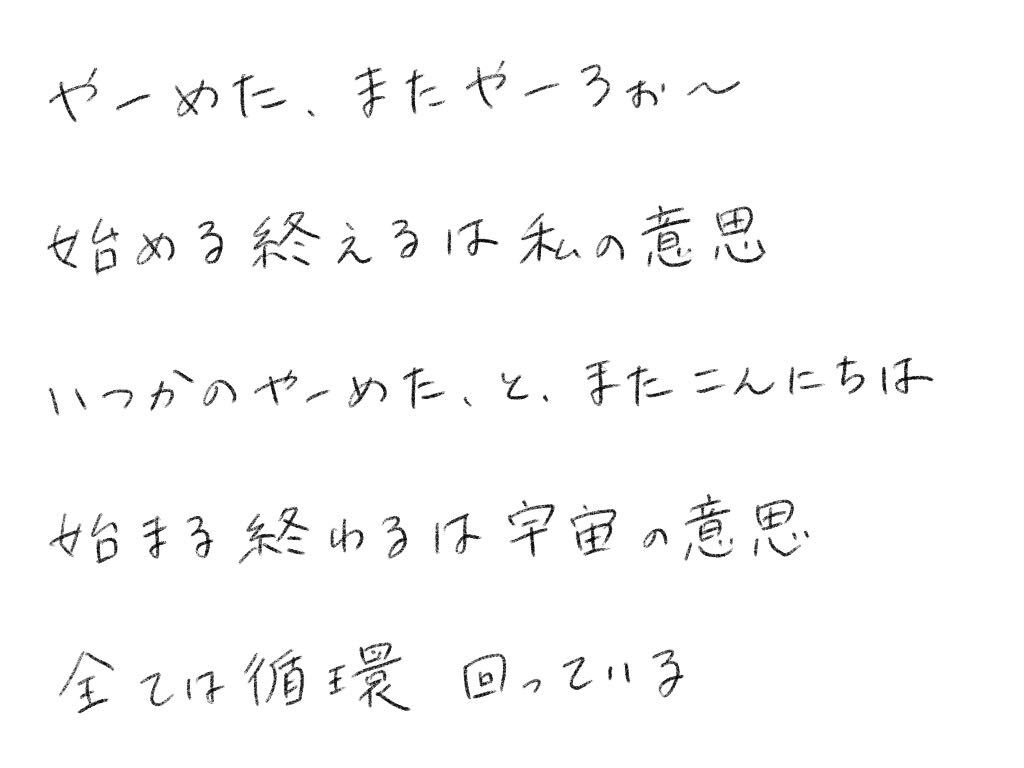 やーめた、またやーろぉ〜
始める終えるは私の意思
いつかのやーめた、と、またこんにちは
始まる終わるは宇宙の意思
全ては循環 回っている